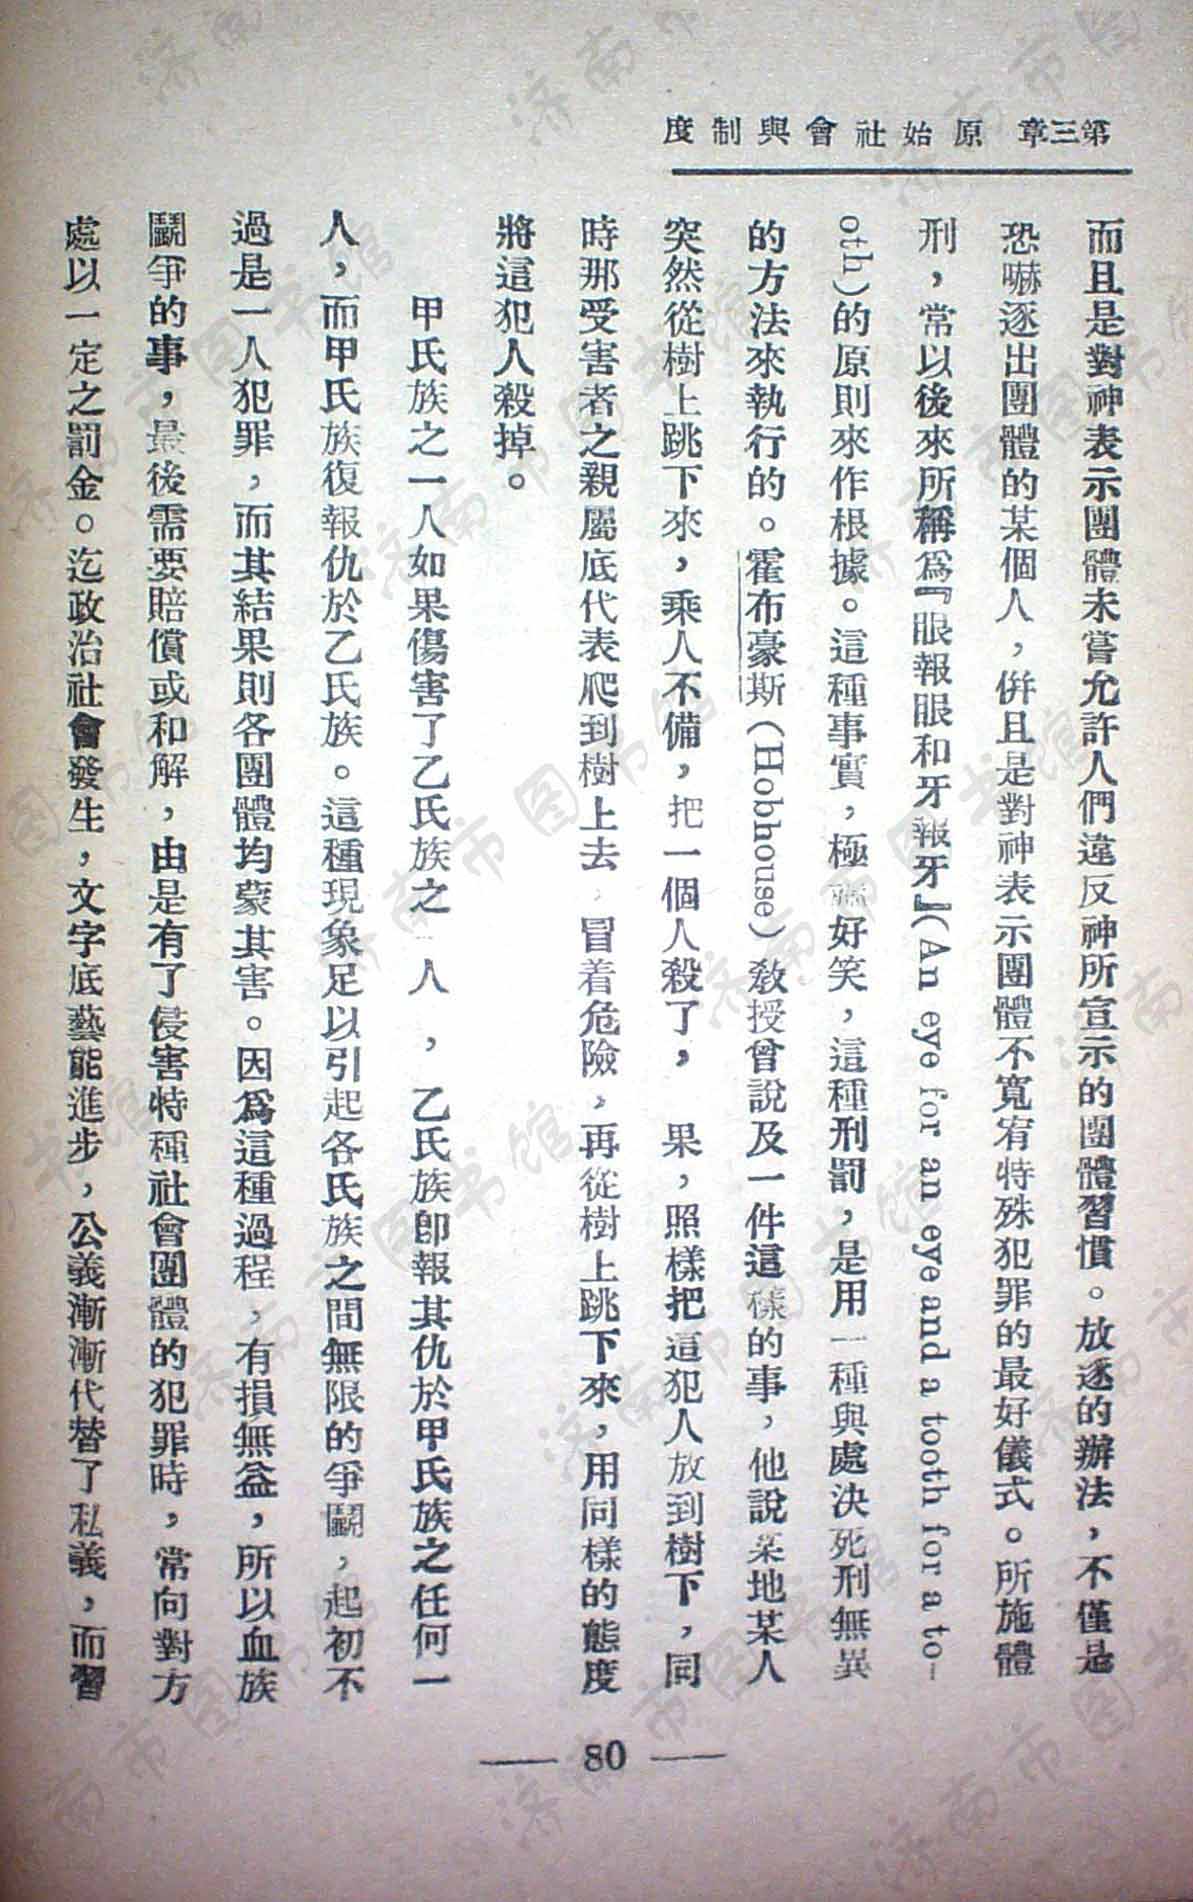 第三章 原始社會與制度
而且是對神表示團體未嘗允許人們違反神所宣示的團體習慣。放逐的辦法，不僅是
恐嚇逐出團體的某個人，併且是對神表示團體不寬宥特殊犯罪的最好儀式。所施體
刑，常以後來所稱爲『眼報眼和牙報牙』(An eye for an eye and a tooth for a to-
oth)的原則來作根據。這種事實，極好笑，這種刑罰，是用一種與處決死刑無異
的方法來執行的。霍布豪斯(Hobhouse)敎授曾說及一件這樣的事，他說某地某人
突然從樹上跳下來，乘人不備，把一個人殺了，果，照樣把這犯人放到樹下，同
時那受害者之親屬底代表爬到樹上去，冒着危險，再從樹上跳下來，用同樣的態度
將這犯人殺掉。
甲氏族之一人如果傷害了乙氏族之一人，乙氏族卽報其仇於甲氏族之任何一
人，而甲氏族復報仇於乙氏族。這種現象足以引起各氏族之間無限的爭鬭，起初不
過是一人犯罪，而其結果則各團體均蒙其害。因爲這種過程，有損無益，所以血族
鬭爭的事，最後需要賠償或和解，由是有了侵害特種社會團體的犯罪時，常向對方
處以一定之罰金。迄政治社會發生，文字底藝能進步，公義漸漸代替了私義，而習
— 80 —
济南市图书馆